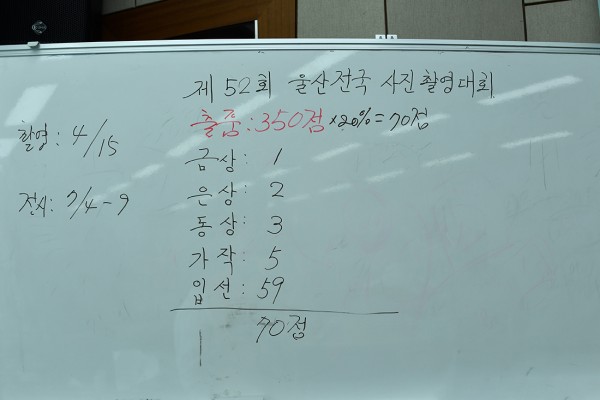 제 52회 울산전국 사진촬영대회
출품: 350점 × 20% = 70점
촬영: 4/15
금상: 1
전시: 7/4 - 9
은상: 2
동상: 3
가작: 5
입선: 59
70점